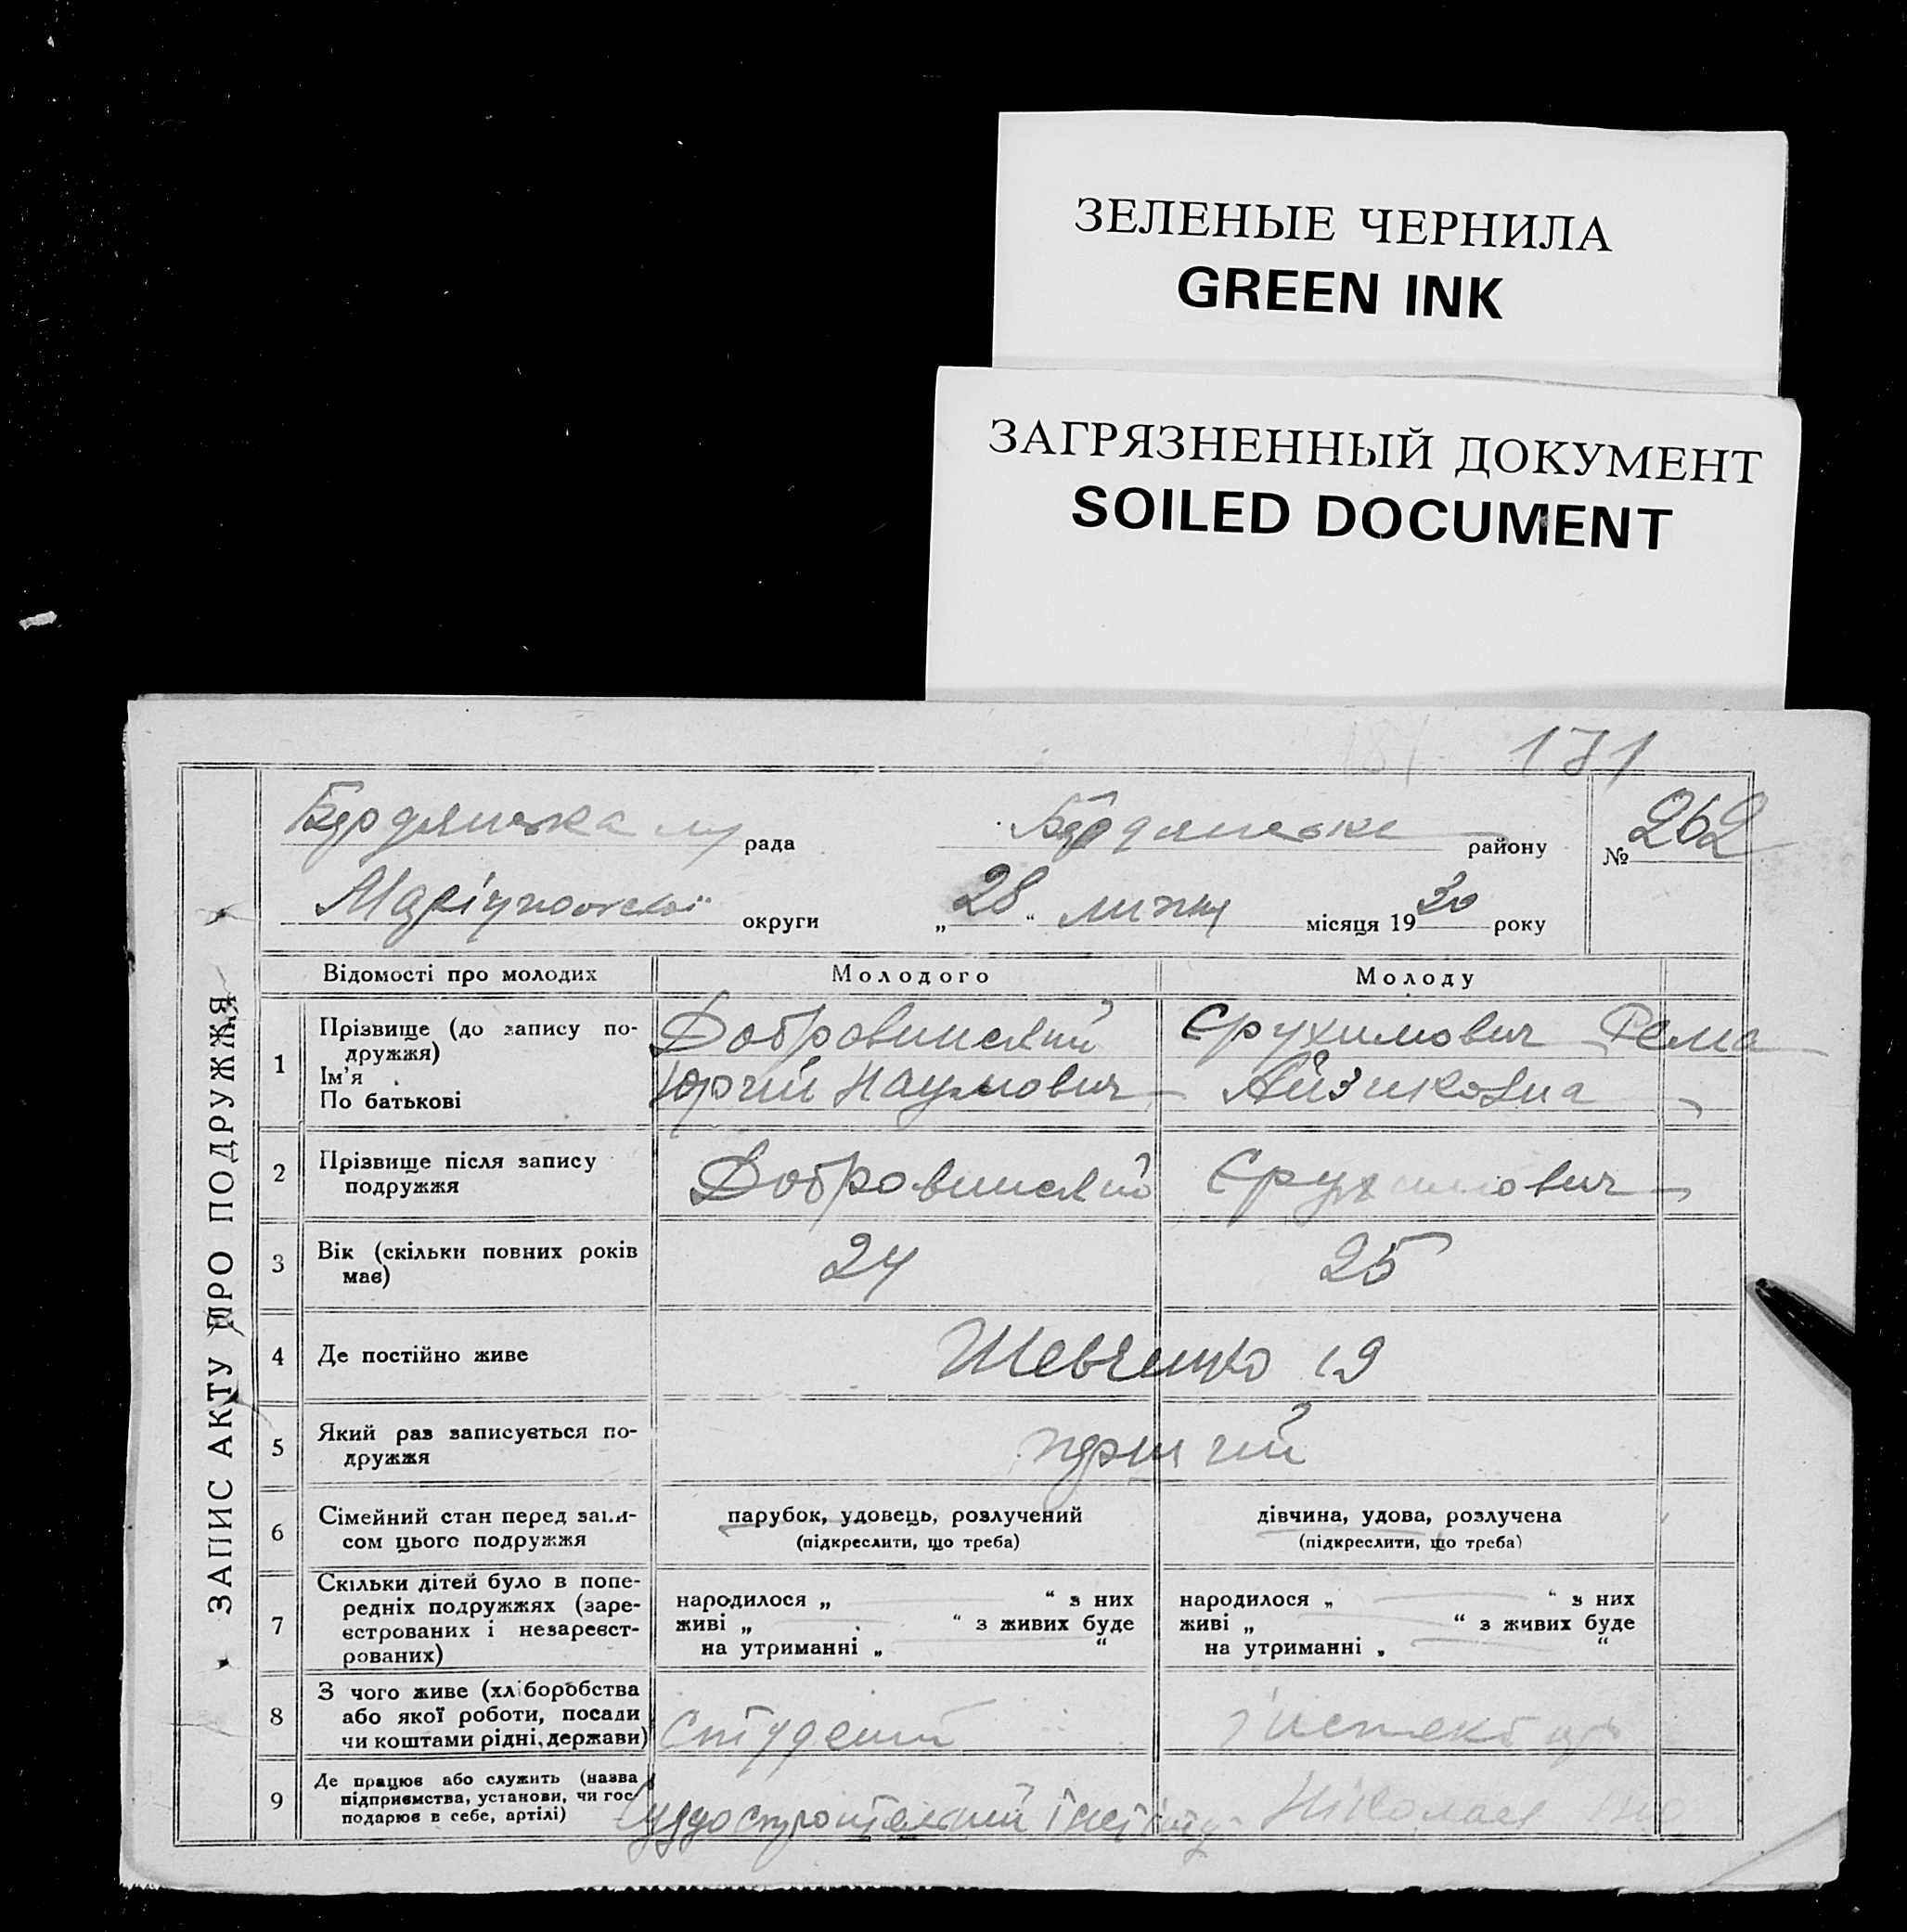 ЗЕЛЕНЫЕ ЧЕРНИЛА
GREEN INK
ЗАГРЯЗНЕННЫЙ ДОКУМЕНТ
SOILED DOCUMENT
171
ЗАПИС АКТУ ПРО ПОДРУЖЖЯ
Бердянська рада Бердянське району № 262
Маріупольської округи „28“ липня місяця 1930 року
Відомості про молодих Молодого Молоду
1 Прізвище (до запису подружжя) Добровинский Єрухимович Рема
Ім'я
По батькові Юрий Наумович Айзиковна
2 Прізвище після запису
подружжя Добровинский Єрухимович
3 Вік (скільки повних років
має) 24 25
4 Де постійно живе Шевченко 19
5 Який раз записується по-
дружжя перший
6 Сімейний стан перед запи-
сом цього подружжя парубок, удовець, розлучений дівчина, удова, розлучена
(підкреслити, що треба) (підкреслити, що треба)
7 Скільки дітей було в попе-
редніх подружжях (заре-
єстрованих і незареєст-
рованих) народилося „ “ з них народилося „ “ з них
живі „ “ з живих буде живі „ “ з живих буде
на утриманні „ “ на утриманні „ “
8 З чого живе (хліборобства
або якої роботи, посади
чи коштами рідні, держави) Студент
9 Де працює або служить (назва
підприємства, установи, чи гос-
подарює в себе, артілі) Суддостроительний інстітут Ніколаев